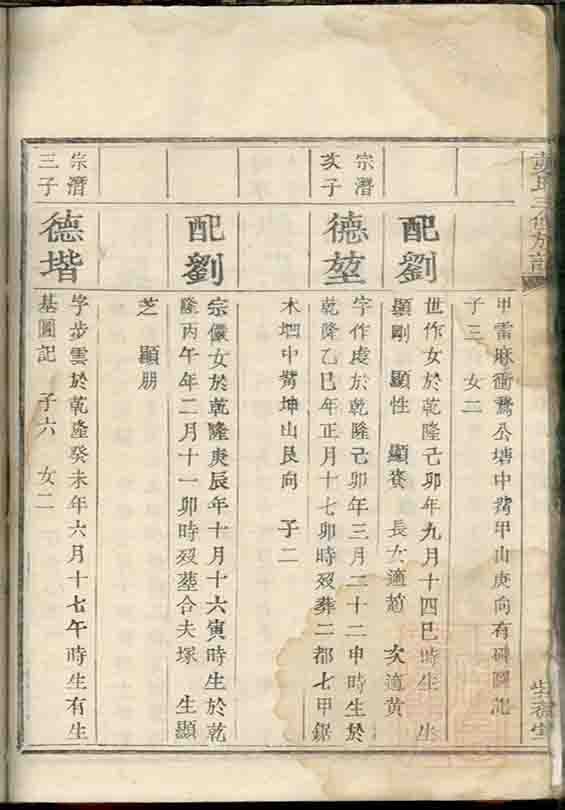 氏三修族譜
堂
甲雷衝鵞公塘中嘴甲山庚向有碑圖記
子三 女二
配劉
世作女於乾隆己卯年九月十四巳時生 生
顯剛 顯性 顯賚 長女適趙 次適黃
宗潛
次子
德堃
字作虔於乾隆己卯年三月二十二申時生於
乾隆乙巳年正月十七卯時歿葬二都七甲鋸
木中嘴坤山艮向 子二
配劉
宗儼女於乾隆庚辰年十月十六寅時生於乾
隆丙午年二月十一卯時歿塟合夫塚 生顯
芝 顯朋
宗潛
三子
德堦
字步雲於乾隆癸未年六月十七午時生有生
基圖記 子六 女二